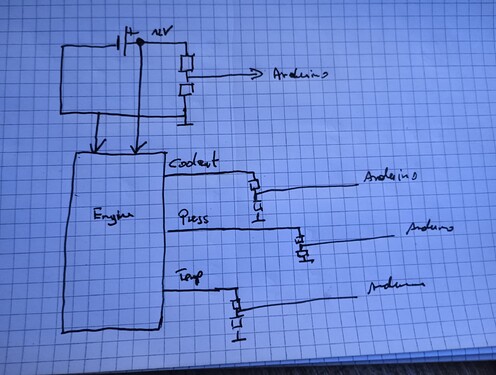 12V
Arduino
Coolant
Arduino
Engine
Press
Arduino
Temp
Arduino